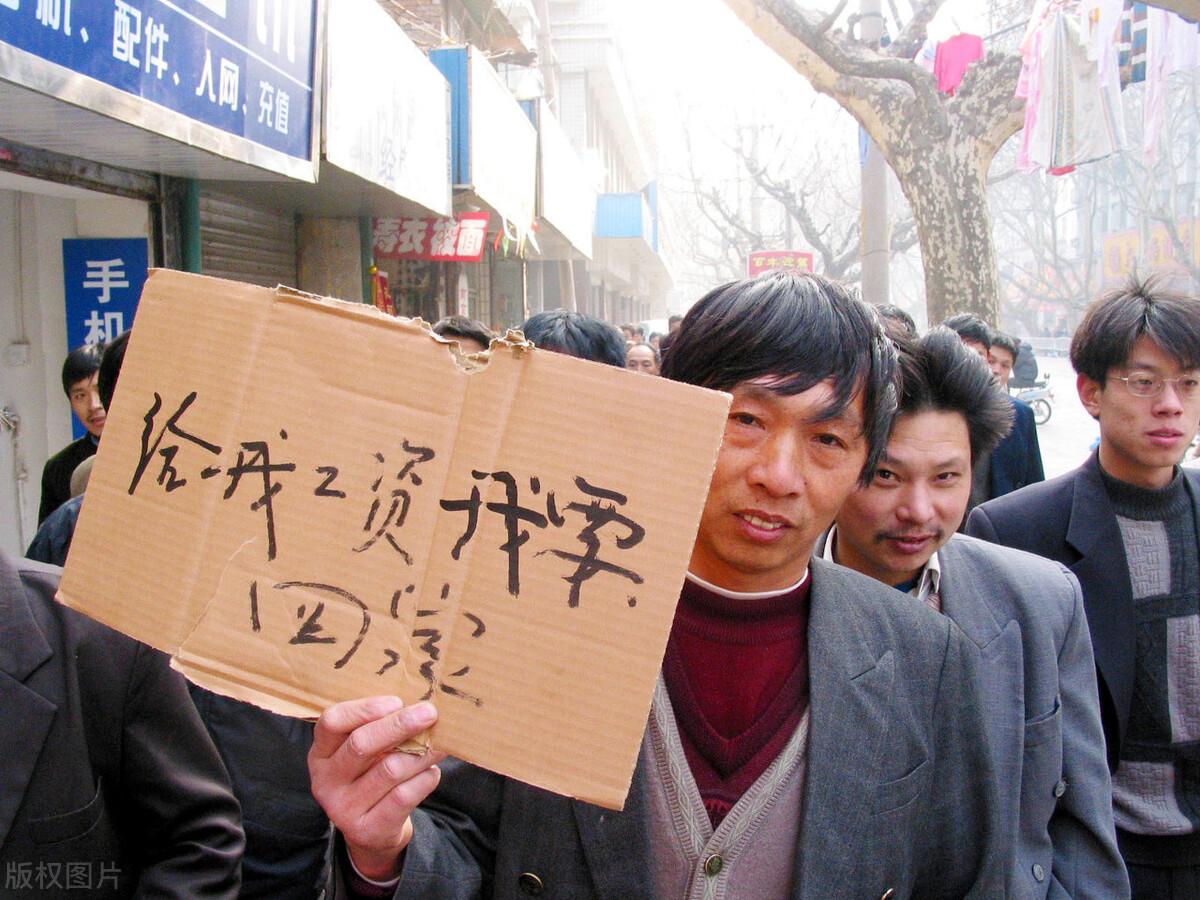 机、配件、入网、充值
寿衣被面
手机
给我工资我要
回家
版权图片